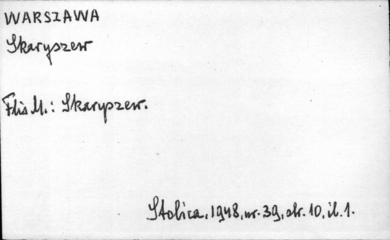 WARSZAWA
Skaryszew
Flis M.: Skaryszew.
Stolica, 1948, nr. 39, str. 10, il. 1.